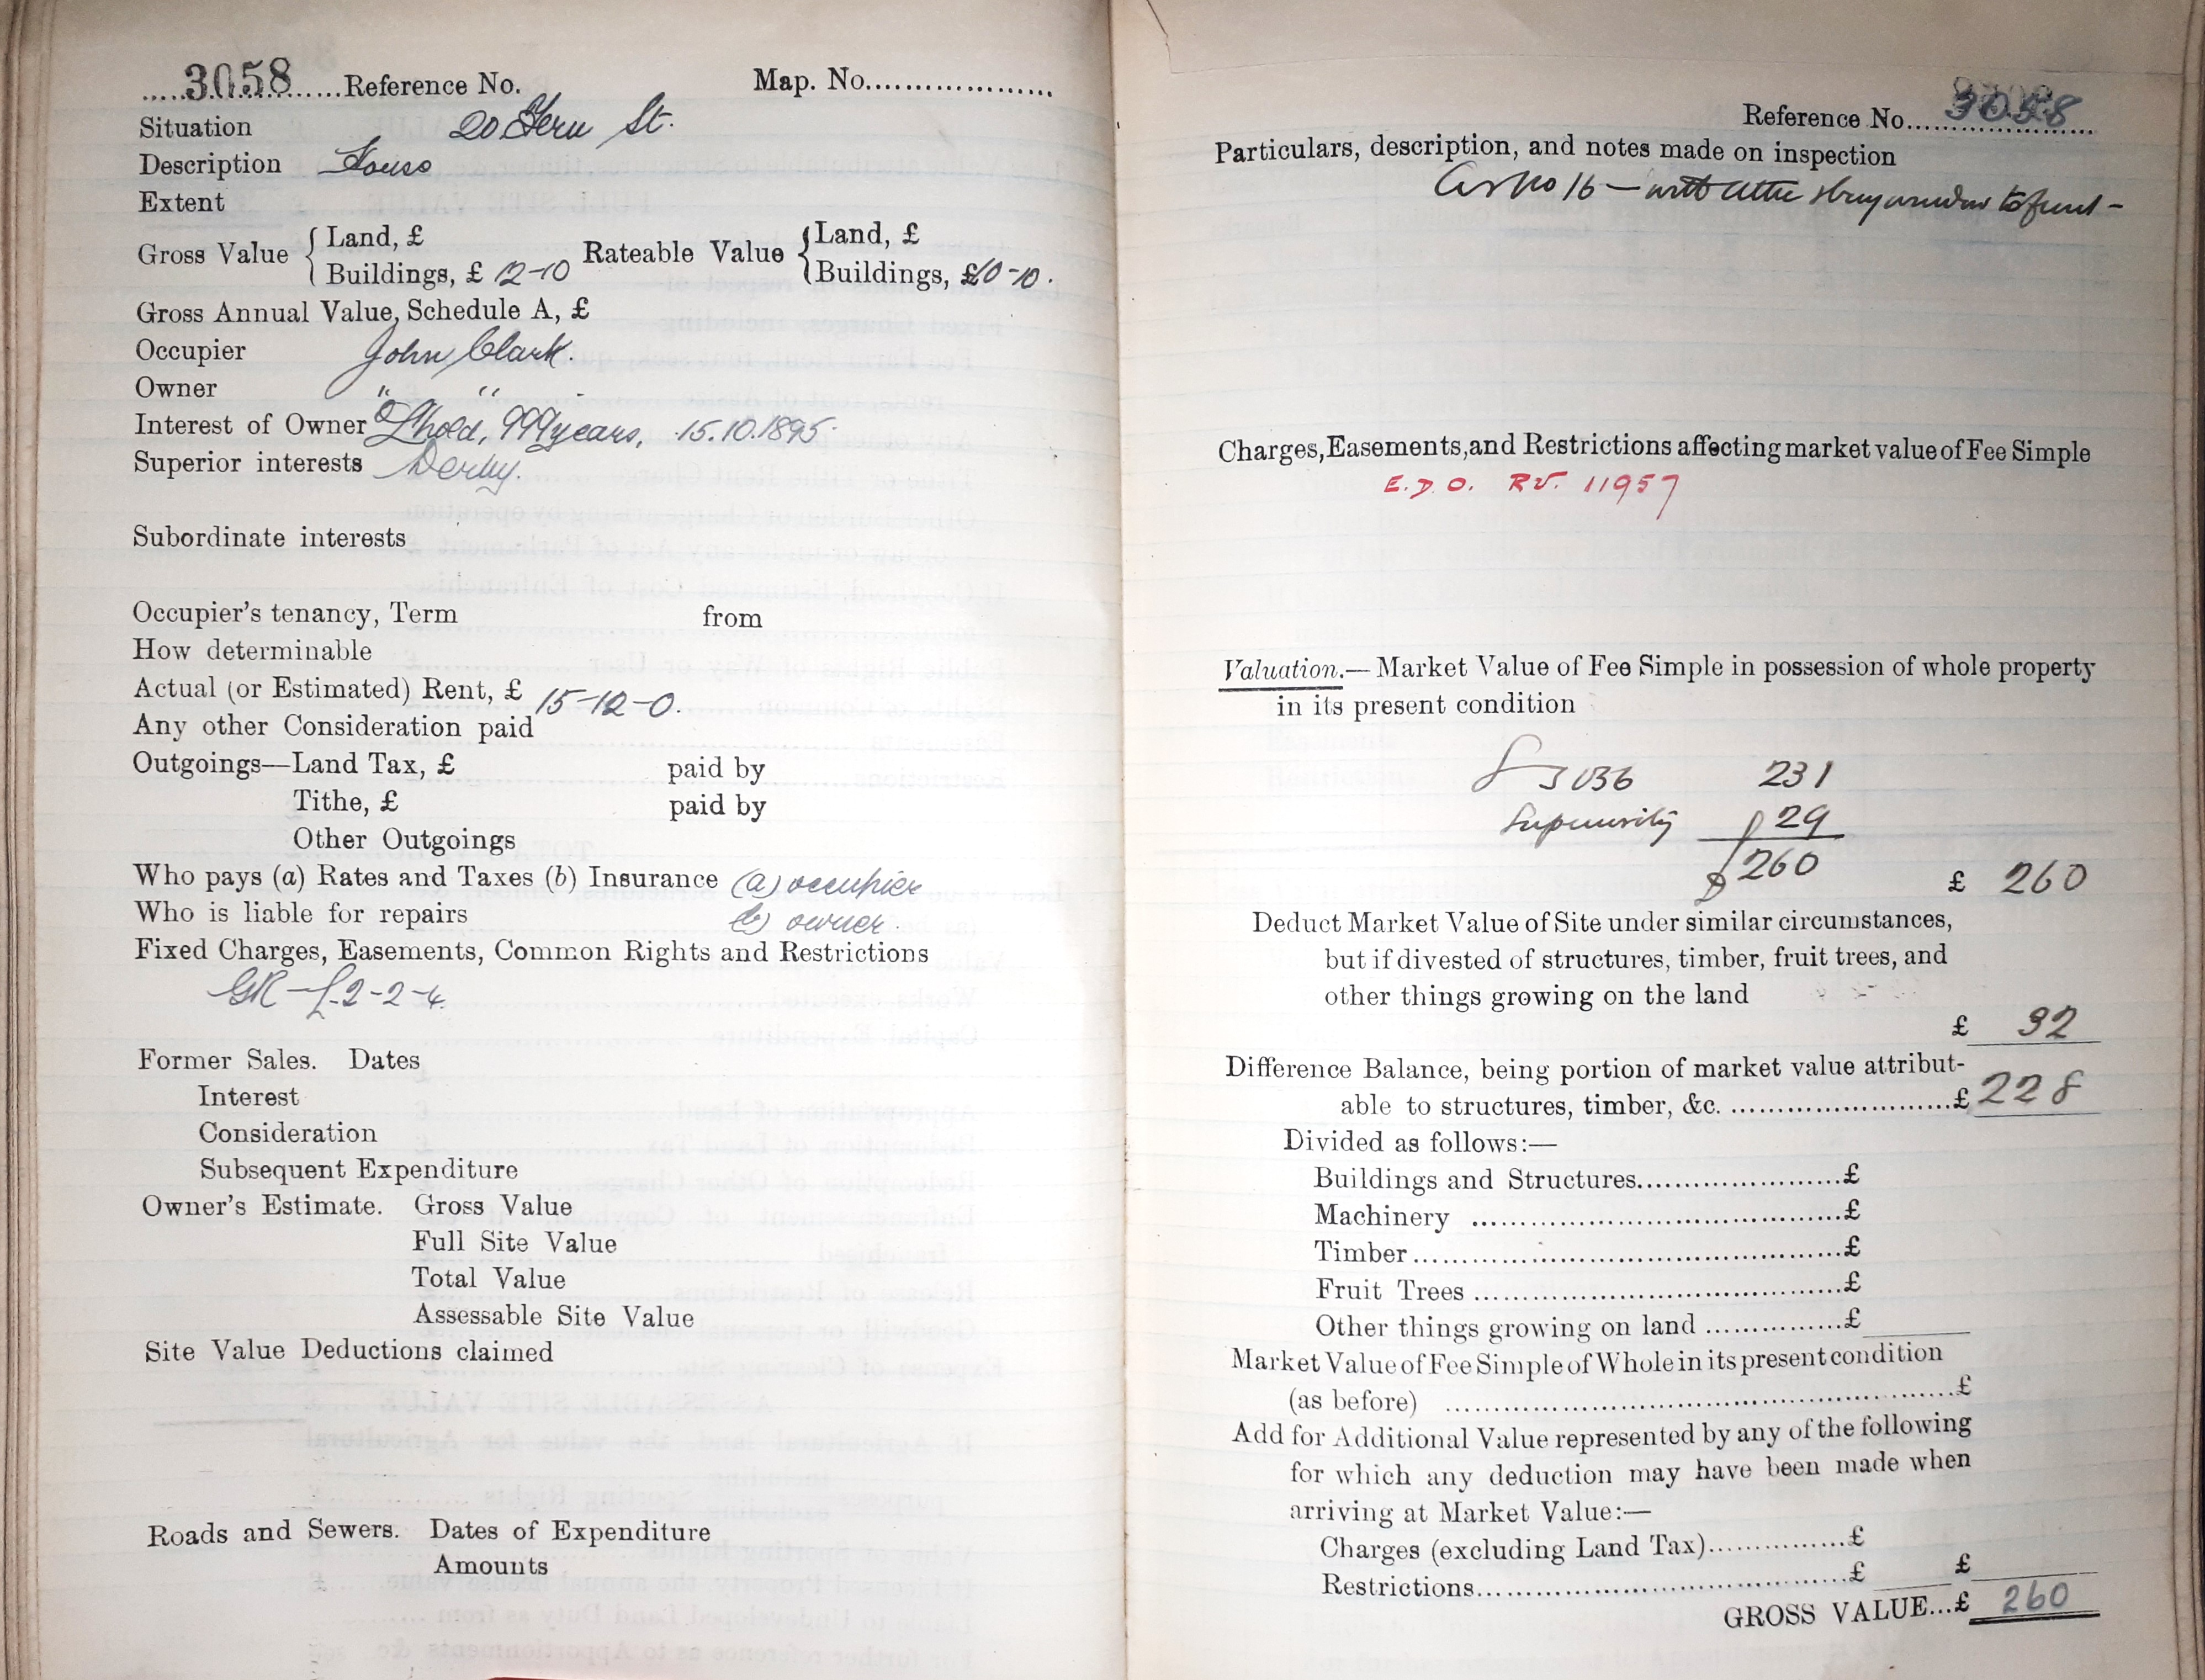 .....3058......Reference No. Map. No.....................
Situation 20 Fern St.
Description House
Extent
Gross Value { Land, £
Buildings, £ 12-10 Rateable Value { Land, £
Buildings, £10-10.
Gross Annual Value, Schedule A, £
Occupier John Clark.
Owner " " -
Interest of Owner L'hold, 999 years, 15.10.1895.
Superior interests Derby.
Subordinate interests
Occupier's tenancy, Term from
How determinable
Actual (or Estimated) Rent, £ 15-12-0.
Any other Consideration paid
Outgoings—Land Tax, £ paid by
Tithe, £ paid by
Other Outgoings
Who pays (a) Rates and Taxes (b) Insurance (a) occupier
Who is liable for repairs (b) owner.
Fixed Charges, Easements, Common Rights and Restrictions
GR - £2-2-4.
Former Sales. Dates
Interest
Consideration
Subsequent Expenditure
Owner's Estimate. Gross Value
Full Site Value
Total Value
Assessable Site Value
Site Value Deductions claimed
Roads and Sewers. Dates of Expenditure
Amounts
Reference No....3058
Particulars, description, and notes made on inspection
As No 16 — with attic & bay window to front -
Charges, Easements, and Restrictions affecting market value of Fee Simple
E.D.O. RV. 11957
Valuation.— Market Value of Fee Simple in possession of whole property
in its present condition
3036 231
Superiority 29
£260
£ 260
Deduct Market Value of Site under similar circumstances,
but if divested of structures, timber, fruit trees, and
other things growing on the land
£ 32
Difference Balance, being portion of market value attribut-
able to structures, timber, &c. ..........................£ 228
Divided as follows:—
Buildings and Structures.......................£
Machinery .......................................£
Timber.............................................£
Fruit Trees .......................................£
Other things growing on land ...............£
Market Value of Fee Simple of Whole in its present condition
(as before) .....................................................£
Add for Additional Value represented by any of the following
for which any deduction may have been made when
arriving at Market Value:—
Charges (excluding Land Tax)...............£
Restrictions.......................................£ £
GROSS VALUE...£ 260